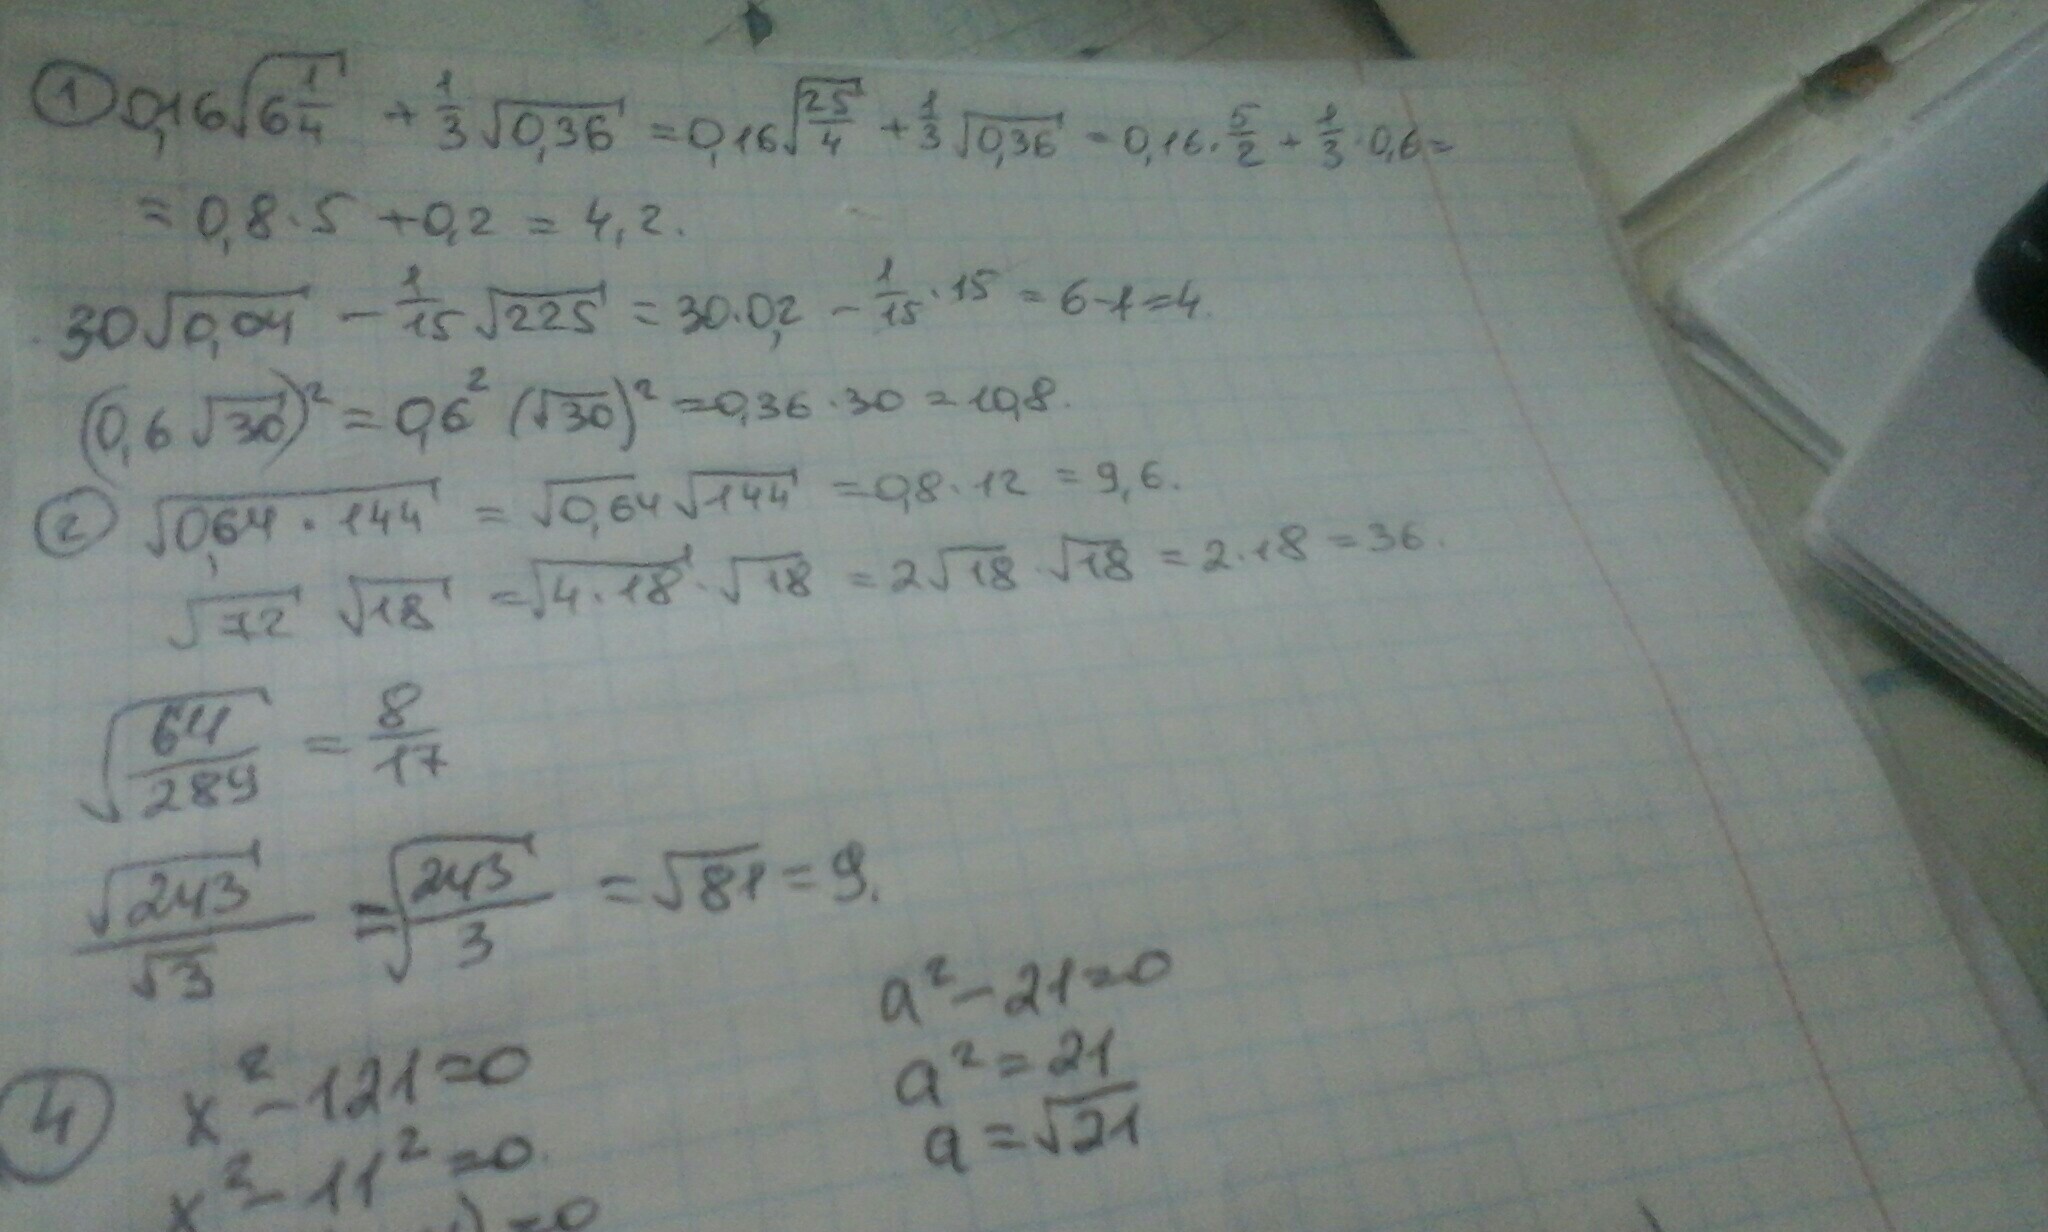 ① 0,16√(6 1/4) + 1/3 √0,36 = 0,16√(25/4) + 1/3 √0,36 = 0,16 · 5/2 + 1/3 · 0,6 =
= 0,8 · 5 + 0,2 = 4,2.
30√0,04 − 1/15 √225 = 30 · 0,2 − 1/15 · 15 = 6 − 1 = 4.
(0,6 √30)² = 0,6² (√30)² = 0,36 · 30 = 10,8.
② √(0,64 · 144) = √0,64 √144 = 0,8 · 12 = 9,6.
√72 √18 = √(4 · 18) · √18 = 2√18 · √18 = 2 · 18 = 36.
√(64/289) = 8/17
√243/√3 = √(243/3) = √81 = 9.
④ x² − 121 = 0
x² − 11² = 0.
) = 0
a² − 21 = 0
a² = 21
a = √21